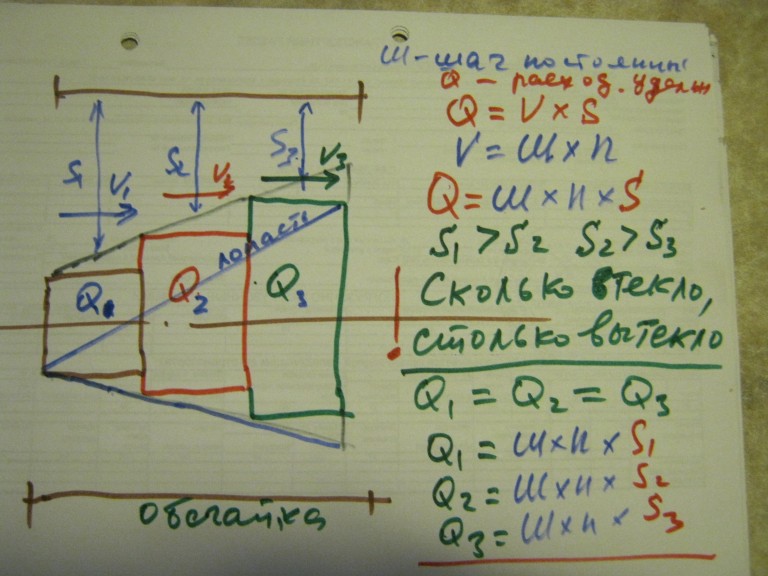 Ш-шаг постоянны
Q - расход. удельн
Q = V × S
V = Ш × n
Q = Ш × n × S
S1 > S2 S2 > S3
Сколько втекло,
! столько вытекло
Q1 = Q2 = Q3
Q1 = Ш × n × S1
Q2 = Ш × n × S2
Q3 = Ш × n × S3
S1 V1 S2 V2 S3 V3
лопасть
Q1 Q2 Q3
обечайка